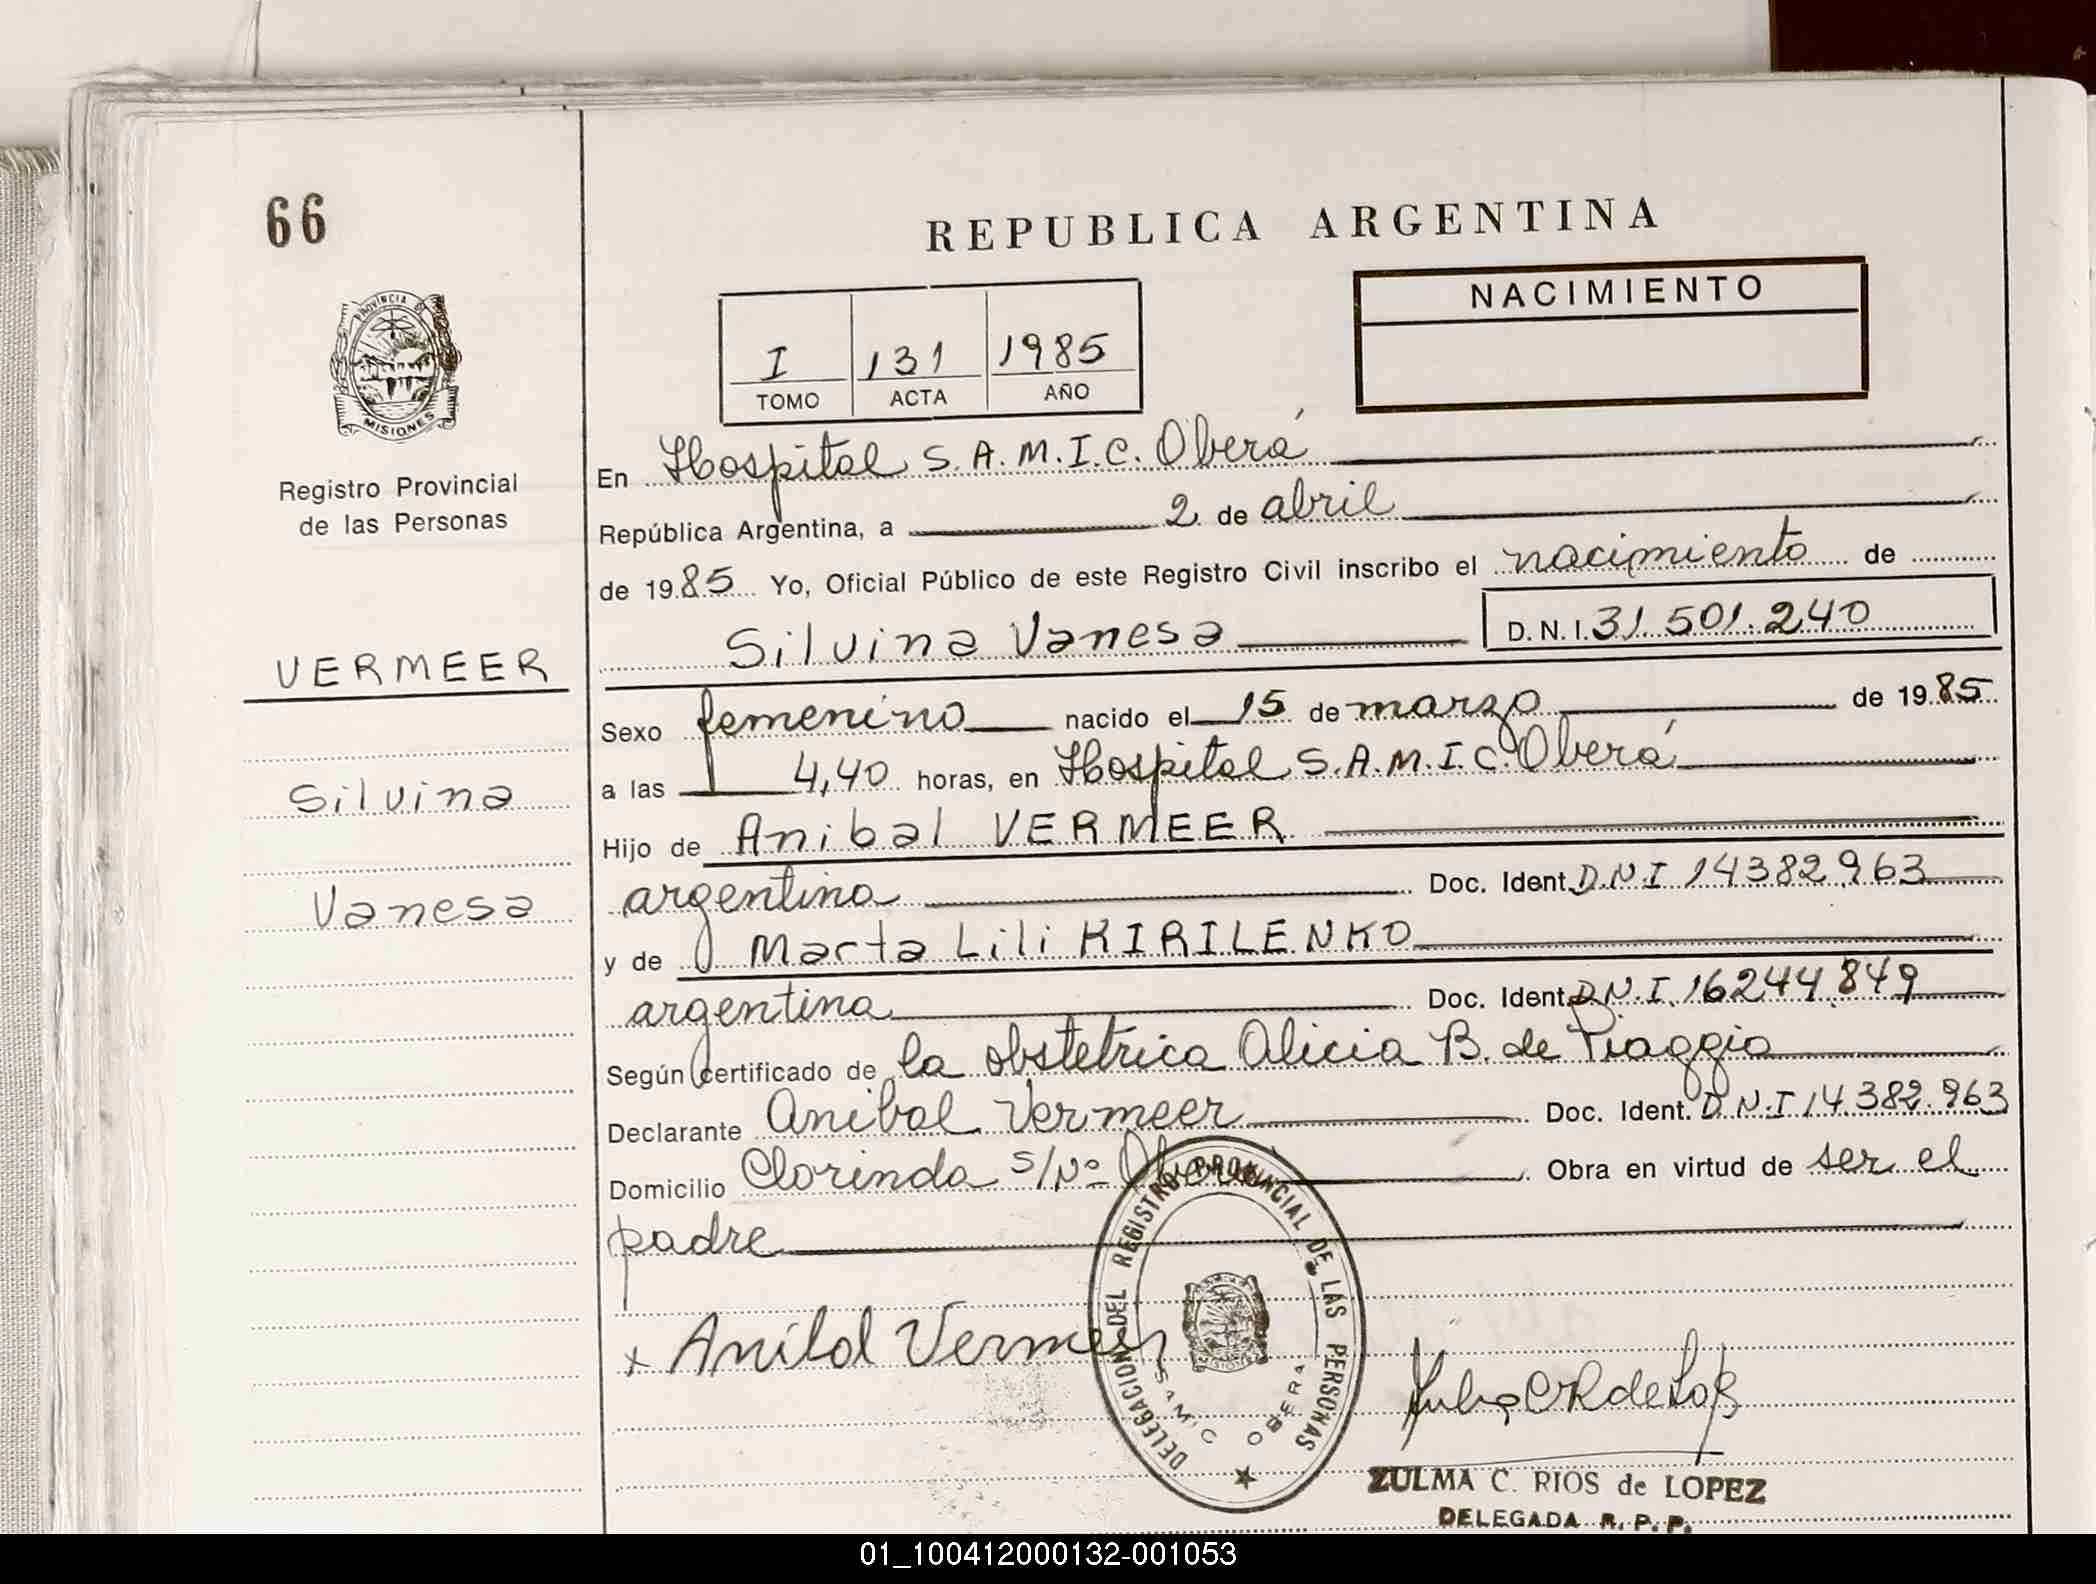 66
REPUBLICA ARGENTINA
NACIMIENTO
I 131 1985
TOMO ACTA AÑO
PROVINCIA DE
MISIONES
Registro Provincial
de las Personas
VERMEER
Silvina
Vanesa
En Hospital S.A.M.I.C. Oberá
República Argentina, a 2 de abril
de 1985 Yo, Oficial Público de este Registro Civil inscribo el nacimiento de
Silvina Vanesa D.N.I. 31.501.240
Sexo femenino nacido el 15 de marzo de 1985
a las 4,40 horas, en Hospital S.A.M.I.C. Oberá
Hijo de Anibal VERMEER
argentino Doc. Ident. D.N.I 14382963
y de Marta Lili KIRILENKO
argentina Doc. Ident. D.N.I. 16244.849
Según certificado de la obstetrica Alicia B. de Piaggio
Declarante Anibal Vermeer Doc. Ident. D.N.I 14.382.963
Domicilio Clorinda s/Nº Oberá Obra en virtud de ser el
padre
x Anibal Vermeer
DELEGACION DEL REGISTRO PROVINCIAL DE LAS PERSONAS
SAMIC OBERA
MISIONES
ZULMA C. RIOS de LOPEZ
DELEGADA R. P. P.
01_100412000132-001053